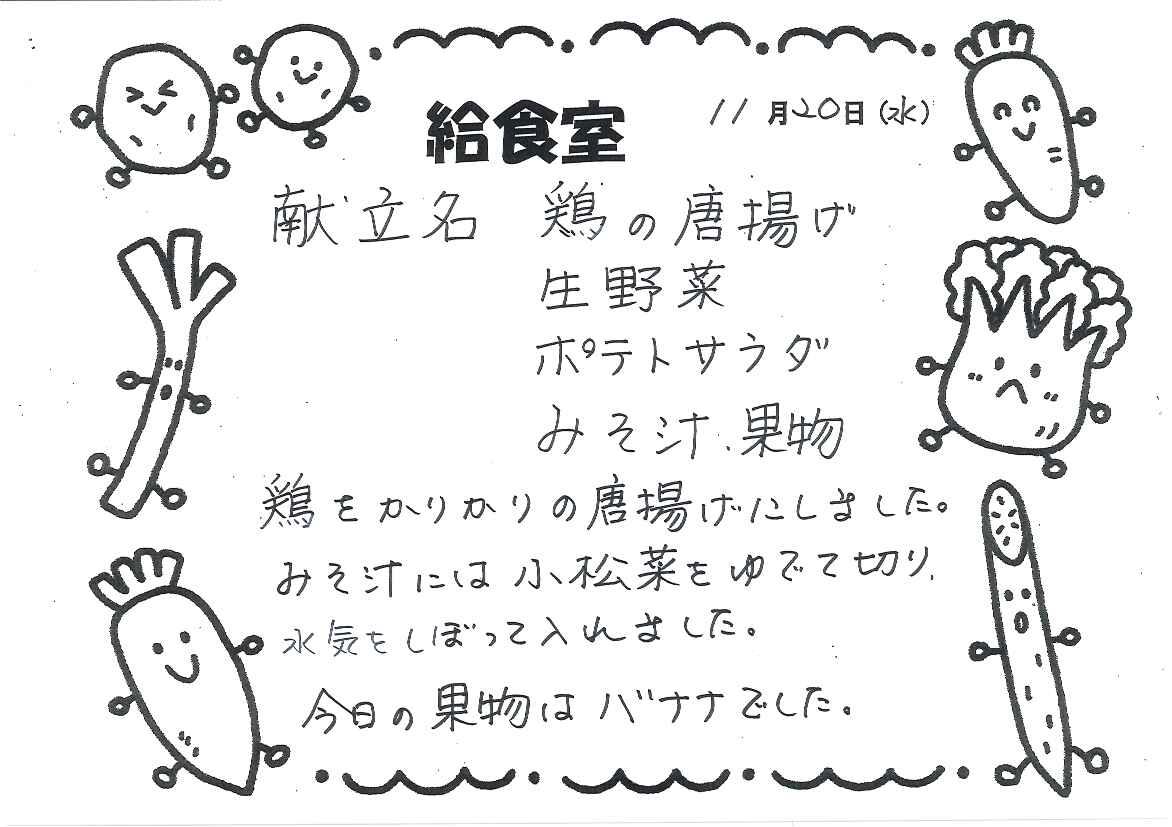 給食室 11月20日(水)
献立名 鶏の唐揚げ
生野菜
ポテトサラダ
みそ汁、果物
鶏をかりかりの唐揚げにしました。
みそ汁には小松菜をゆでて切り、
水気をしぼって入れました。
今日の果物はバナナでした。